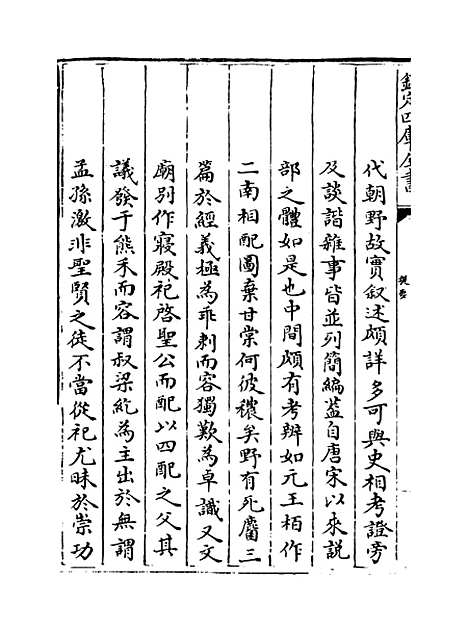 欽定四庫全書
提要
代朝野故實叙述頗詳多可與史相考證旁
及談諧雜事皆並列簡編蓋自唐宋以來説
部之體如是也中間頗有考辨如元王栢作
二南相配圖棄甘棠何彼穠矣野有死麕三
篇於經義極為乖剌而容獨歎為卓識又文
廟别作寢殿祀啓聖公而配以四配之父其
議發于熊禾而容謂叔梁紇為主出於無謂
孟孫激非聖賢之徒不當從祀尤昧於崇功